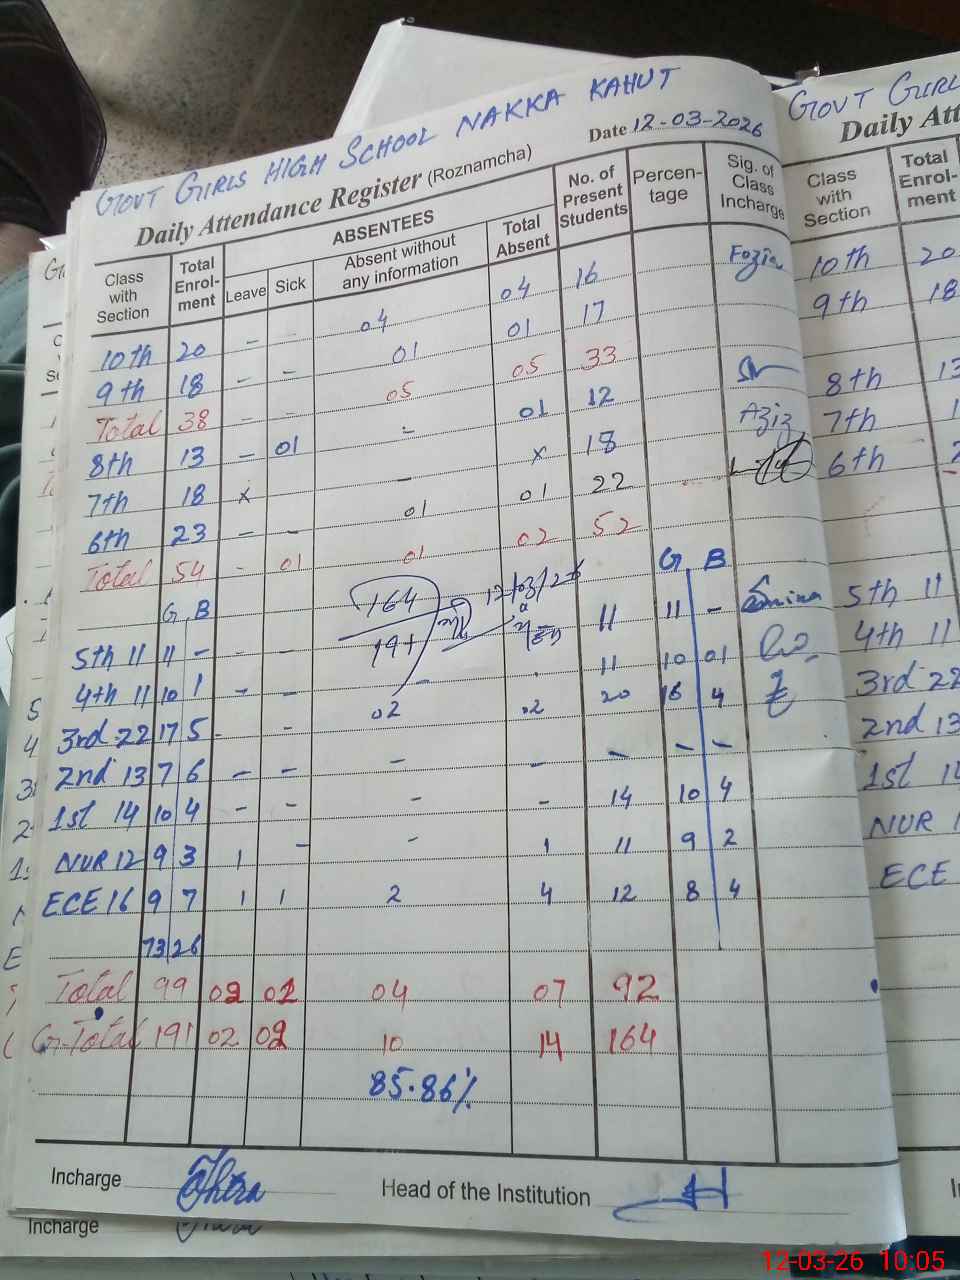 GOVT GIRLS HIGH SCHOOL NAKKA KAHUT
Daily Attendance Register (Roznamcha) Date 12-03-2026
Class with Section Total Enrol-ment ABSENTEES Leave Sick Absent without any information Total Absent No. of Present Students Percen-tage Sig. of Class Incharge
10th 20 - - 04 04 16 Fozia
9th 18 - - 01 01 17
Total 38 - - 05 05 33
8th 13 - 01 - 01 12
7th 18 x - x 18 Aziz
6th 23 - - 01 01 22
Total 54 - 01 01 02 52
G B G B
164 12/03/26
5th 11 11 - - - 11 11 - Amina
4th 11 10 1 - - - . 11 10 01
3rd 22 17 5 - - 02 02 20 16 4
2nd 13 7 6 - - - - - - -
1st 14 10 4 - - - - 14 10 4
NUR 12 9 3 1 - - 1 11 9 2
ECE 16 9 7 1 1 2 4 12 8 4
73 26
Total 99 02 02 04 07 92
G-Total 191 02 02 10 14 164
85.86%
Incharge Head of the Institution
Incharge
GOVT GIRL
Daily Att
Class with Section Total Enrol-ment
10th 20
9th 18
8th 13
7th 1
6th 2
5th 11
4th 11
3rd 22
2nd 13
1st 14
NUR 1
ECE
12-03-26 10:05